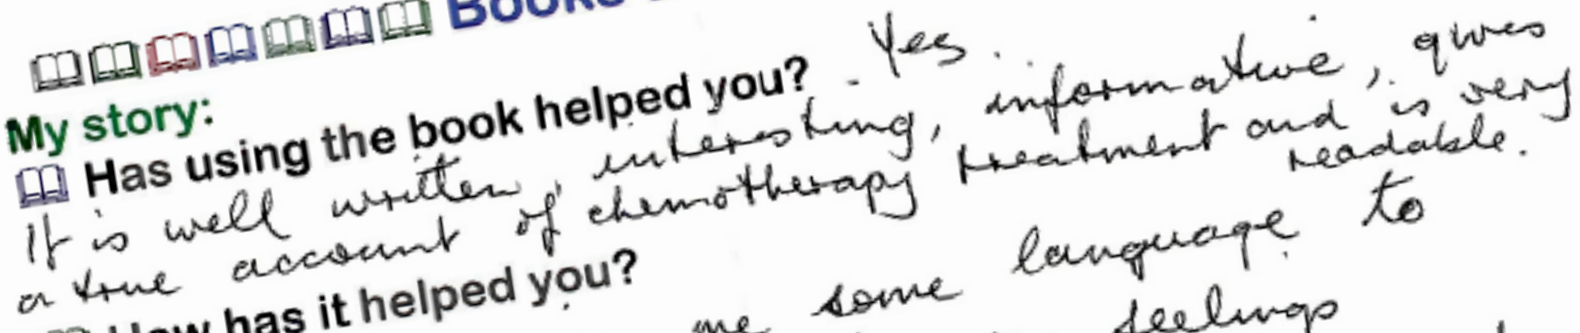 Books
My story:
Has using the book helped you? Yes.
It is well written, interesting, informative, gives
a true account of chemotherapy treatment and is very
readable.
How has it helped you?
me some language to
feelings